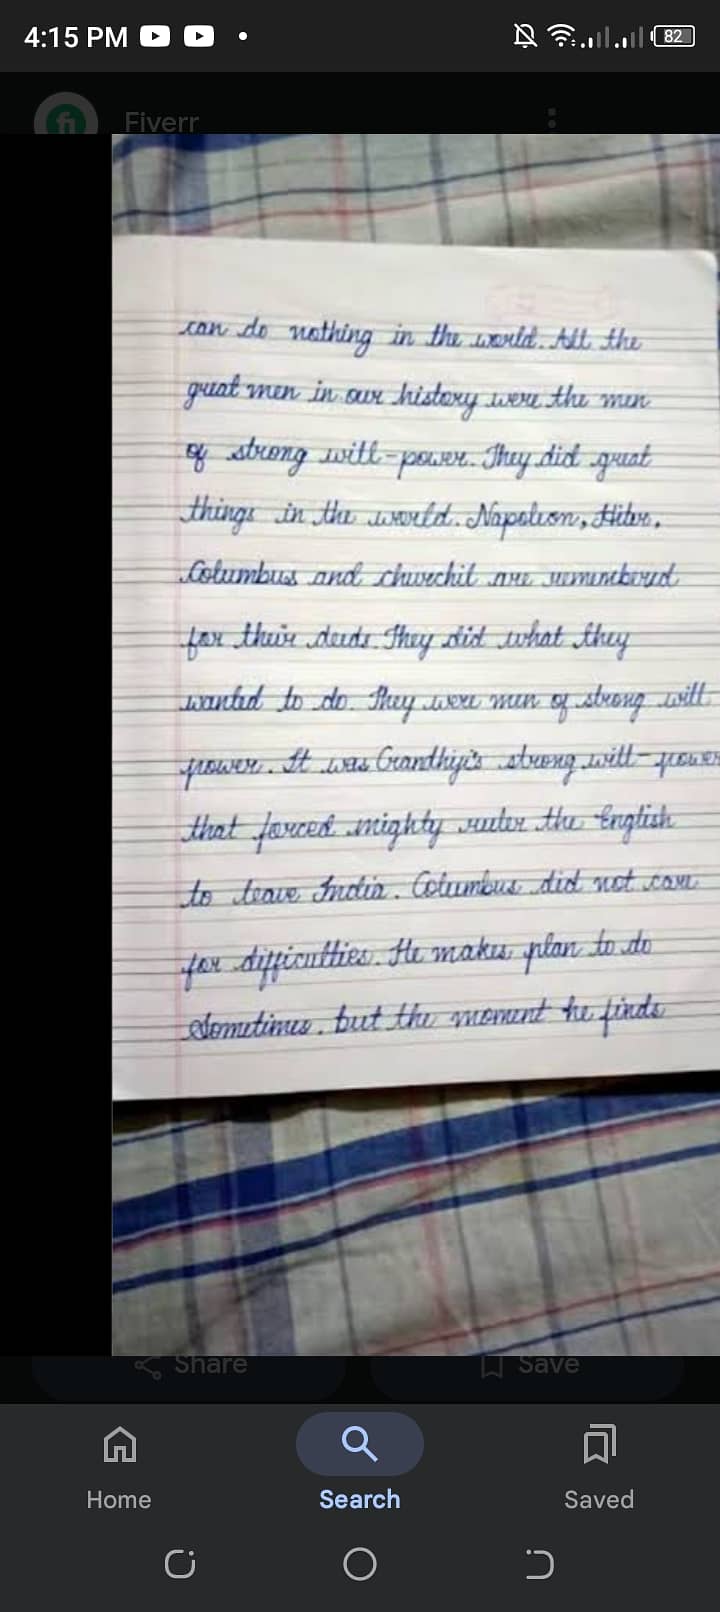 4:15 PM
82
Fiverr
can do nothing in the world. All the
great men in our history were the men
of strong will-power. They did great
things in the world. Napoleon, Hitler,
Columbus and churchil are remembered
for their deeds. They did what they
wanted to do. They were men of strong will
power. It was Gandhiji's strong will-power
that forced mighty ruler the English
to leave India. Columbus did not care
for difficulties. He makes plan to do
Sometimes. but the moment he finds
Share
Save
Home
Search
Saved